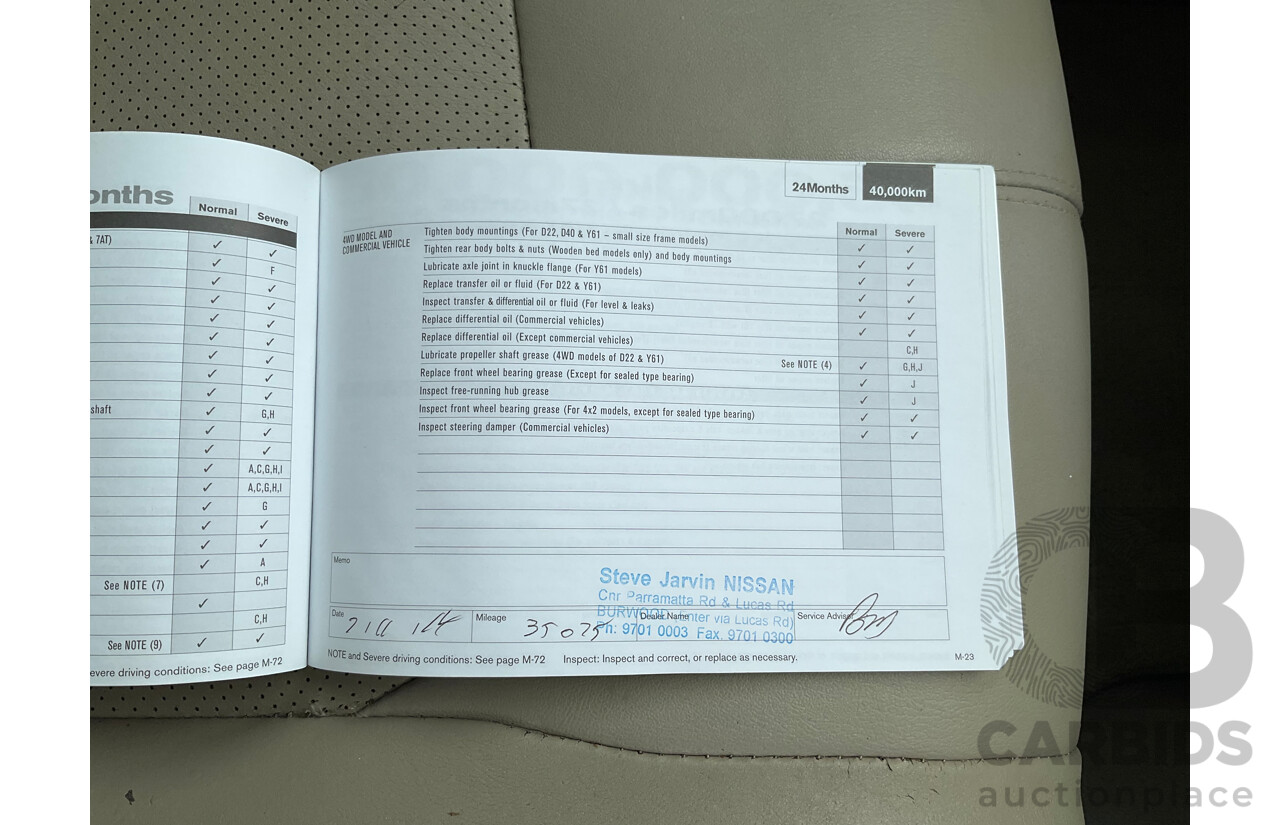 onths
Normal Severe
& 7AT) ✓ ✓
✓ F
✓ ✓
✓ ✓
✓ ✓
✓ ✓
✓ ✓
✓ ✓
✓ ✓
shaft ✓ G,H
✓ ✓
✓ ✓
✓ A,C,G,H,I
✓ A,C,G,H,I
✓ G
✓ ✓
✓ ✓
✓ A
See NOTE (7) C,H
✓
C,H
See NOTE (9) ✓ ✓
evere driving conditions: See page M-72
24Months 40,000km
Normal Severe
4WD MODEL AND
COMMERCIAL VEHICLE
Tighten body mountings (For D22, D40 & Y61 – small size frame models) ✓ ✓
Tighten rear body bolts & nuts (Wooden bed models only) and body mountings ✓ ✓
Lubricate axle joint in knuckle flange (For Y61 models) ✓ ✓
Replace transfer oil or fluid (For D22 & Y61) ✓ ✓
Inspect transfer & differential oil or fluid (For level & leaks) ✓ ✓
Replace differential oil (Commercial vehicles) ✓ ✓
Replace differential oil (Except commercial vehicles) C,H
Lubricate propeller shaft grease (4WD models of D22 & Y61) See NOTE (4) ✓ G,H,J
Replace front wheel bearing grease (Except for sealed type bearing) ✓ J
Inspect free-running hub grease ✓ J
Inspect front wheel bearing grease (For 4x2 models, except for sealed type bearing) ✓ ✓
Inspect steering damper (Commercial vehicles) ✓ ✓
Memo
Steve Jarvin NISSAN
Cnr Parramatta Rd & Lucas Rd
BURWOOD (enter via Lucas Rd)
Ph: 9701 0003 Fax. 9701 0300
Date Mileage 35075 Dealer Name Service Advisor
NOTE and Severe driving conditions: See page M-72 Inspect: Inspect and correct, or replace as necessary.
M-23
CB
CARBIDS
auctionplace